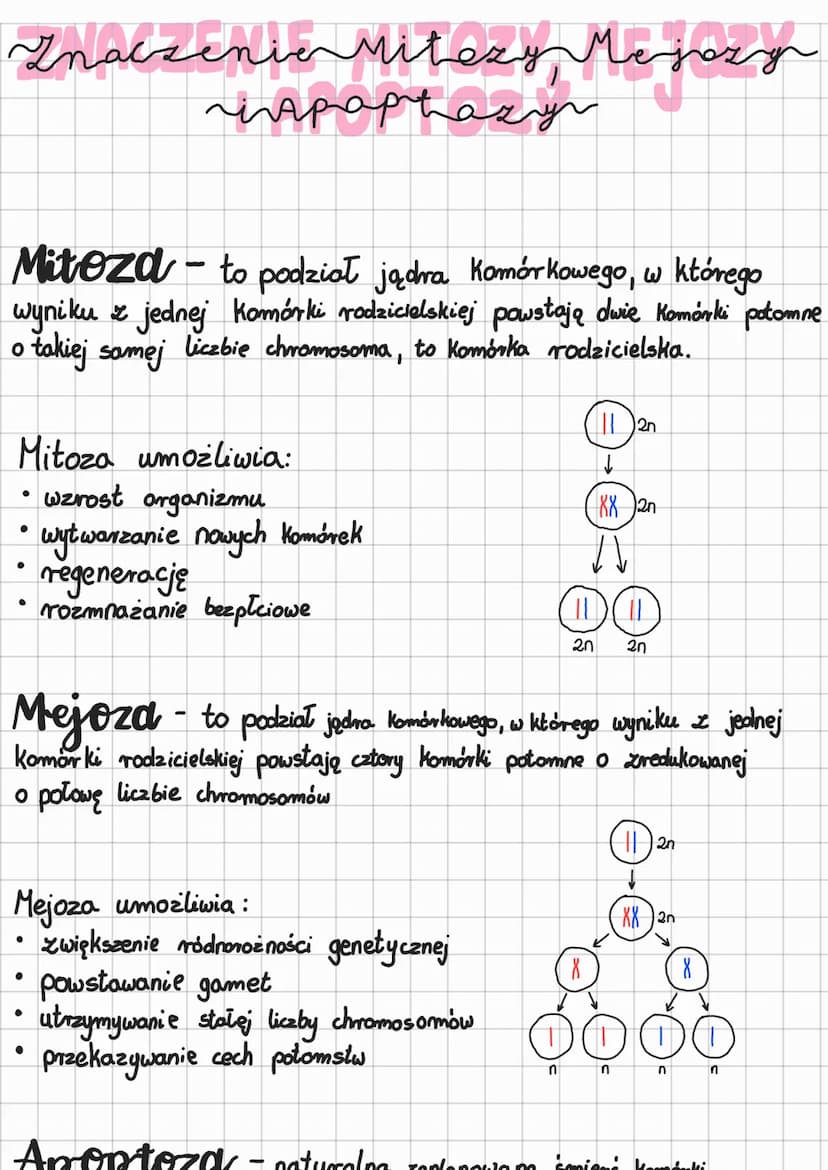 Znaczenie Mitozy, Mejozy
i Apoptozy
Mitoza - to podział jądra komórkowego, w którego
wyniku z jednej komórki rodzicielskiej powstają dwie komórki potomne
o takiej samej liczbie chromosoma, to komórka rodzicielska.
2n
Mitoza umożliwia:
• wzrost organizmu
2n
• wytwarzanie nowych komórek
• regenerację
• rozmnażanie bezpłciowe
2n 2n
Mejoza - to podział jądra komórkowego, w którego wyniku z jednej
komórki rodzicielskiej powstają cztery komórki potomne o zredukowanej
o połowę liczbie chromosomów
2n
Mejoza umożliwia:
2n
• zwiększenie
genetycznej
• powstawanie gamet
• utrzymywanie stałej liczby chromosomów
• przekazywanie cech potomstw
n n n n
Apoptoza - naturalna, zaplanowana śmierć komórki